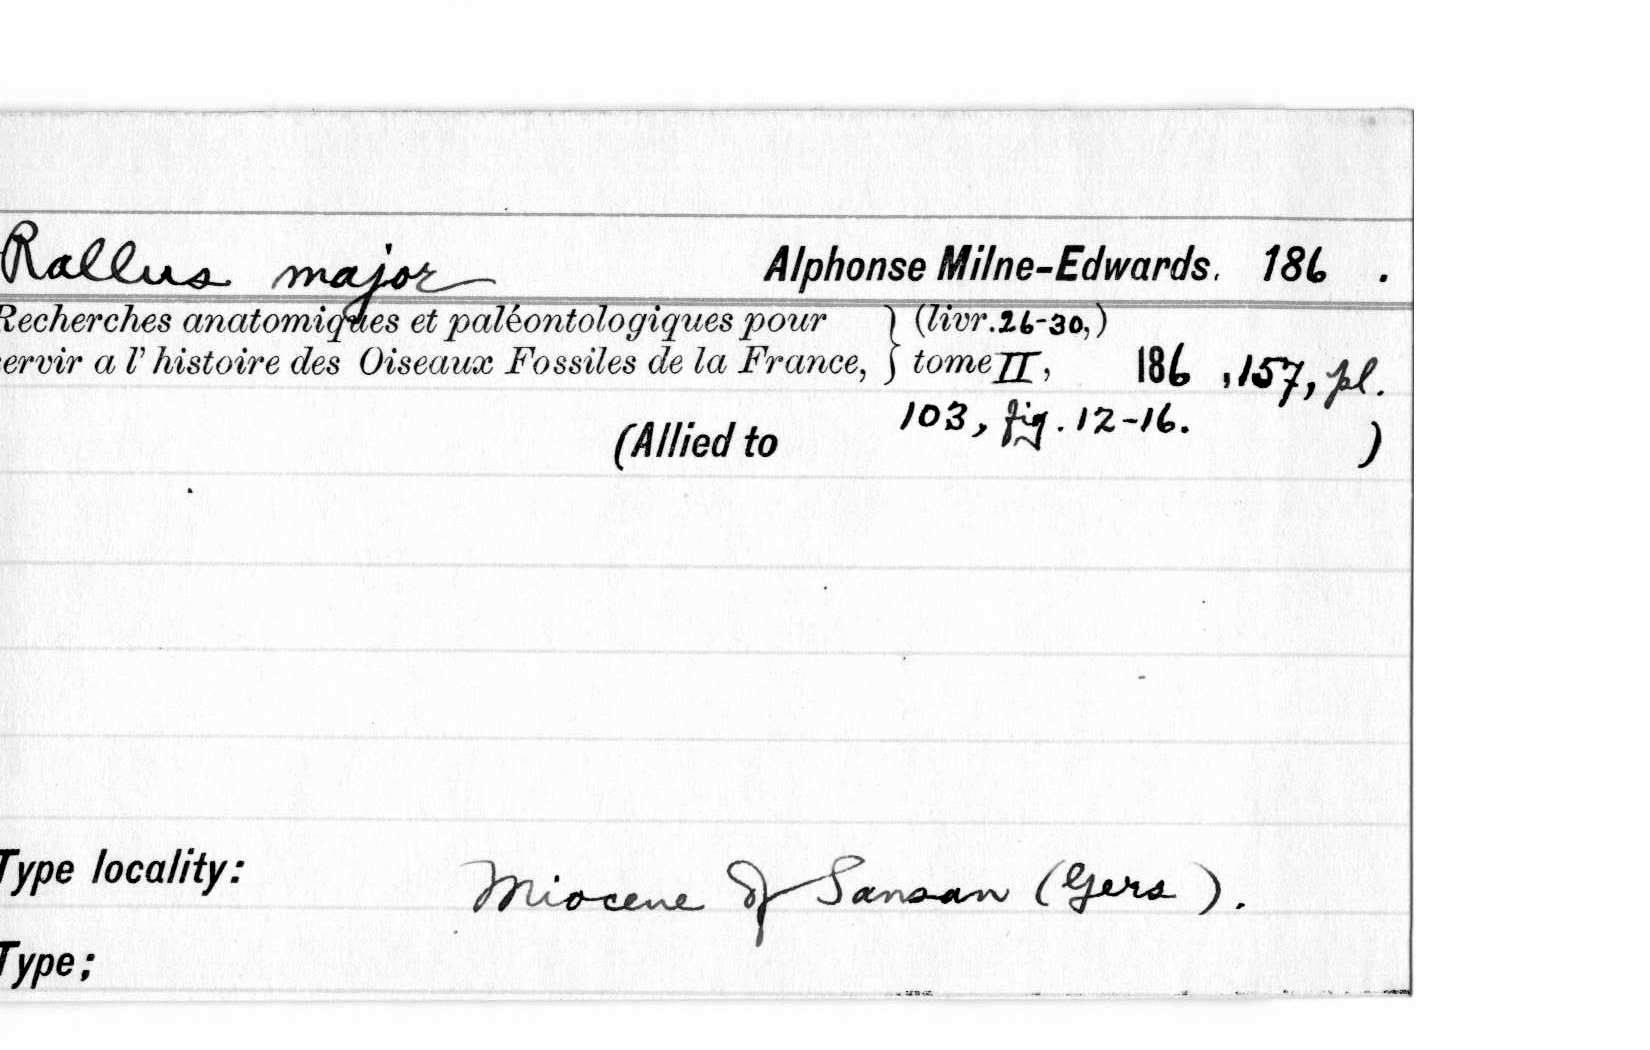 Rallus major Alphonse Milne-Edwards. 186 .
Recherches anatomiques et paléontologiques pour } (livr.26-30,)
ervir a l'histoire des Oiseaux Fossiles de la France, } tome II, 186 ,157, pl.
103, fig. 12-16.
(Allied to )
Type locality: Miocene of Sansan (Gers).
Type;